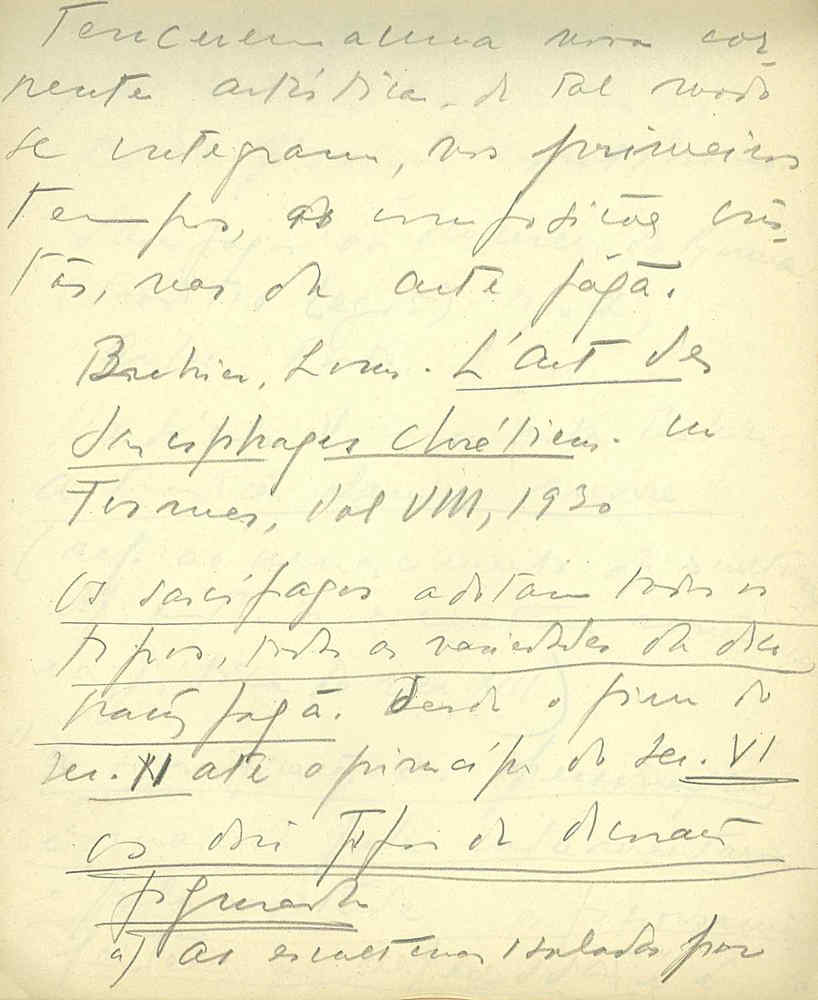 Tencerem a uma nova cor
rente artística, de tal modo
se integram, nos primeiros
tempos, as composições cris-
tãs, nas da arte pagã.
Brehier, Louis. L'art des
sarcophages chrétiens. in
Formes, Vol VIII, 1930
Os sarcófagos adotam todos os
tipos, todas as variedades da deco
ração pagã. Desde o fim do
sec. II até o princípio do sec. VI
os dois tipos de decoração
figurada
a) as esculturas isoladas por